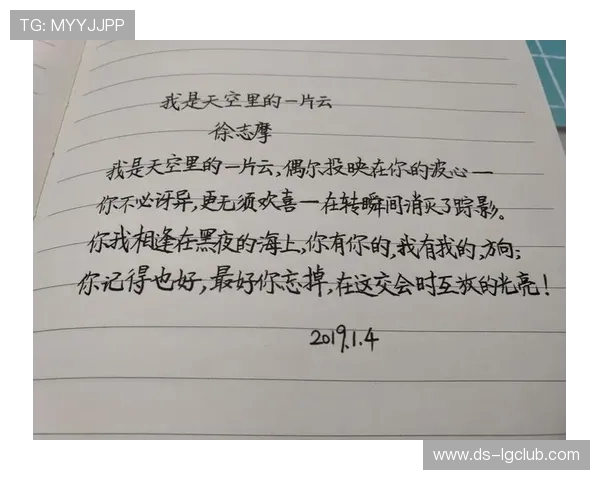 TG: MYYJJPP
我是天空里的一片云
徐志摩
我是天空里的一片云,偶尔投映在你的波心一
你不必讶异,更无须欢喜一在转瞬间消灭了踪影。
你我相逢在黑夜的海上,你有你的,我有我的,方向;
你记得也好,最好你忘掉,在这交会时互放的光亮!
2019.1.4
www.ds-lgclub.com